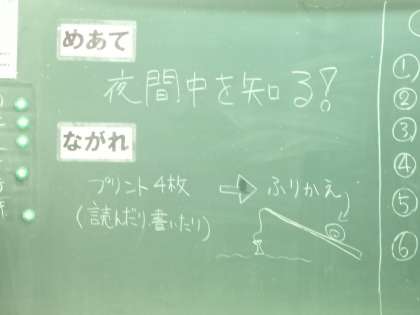 めあて
夜間中を知る!
ながれ
プリント4枚 ⇨ ふりかえり
(読んだり、書いたり)
①
②
③
④
⑤
⑥